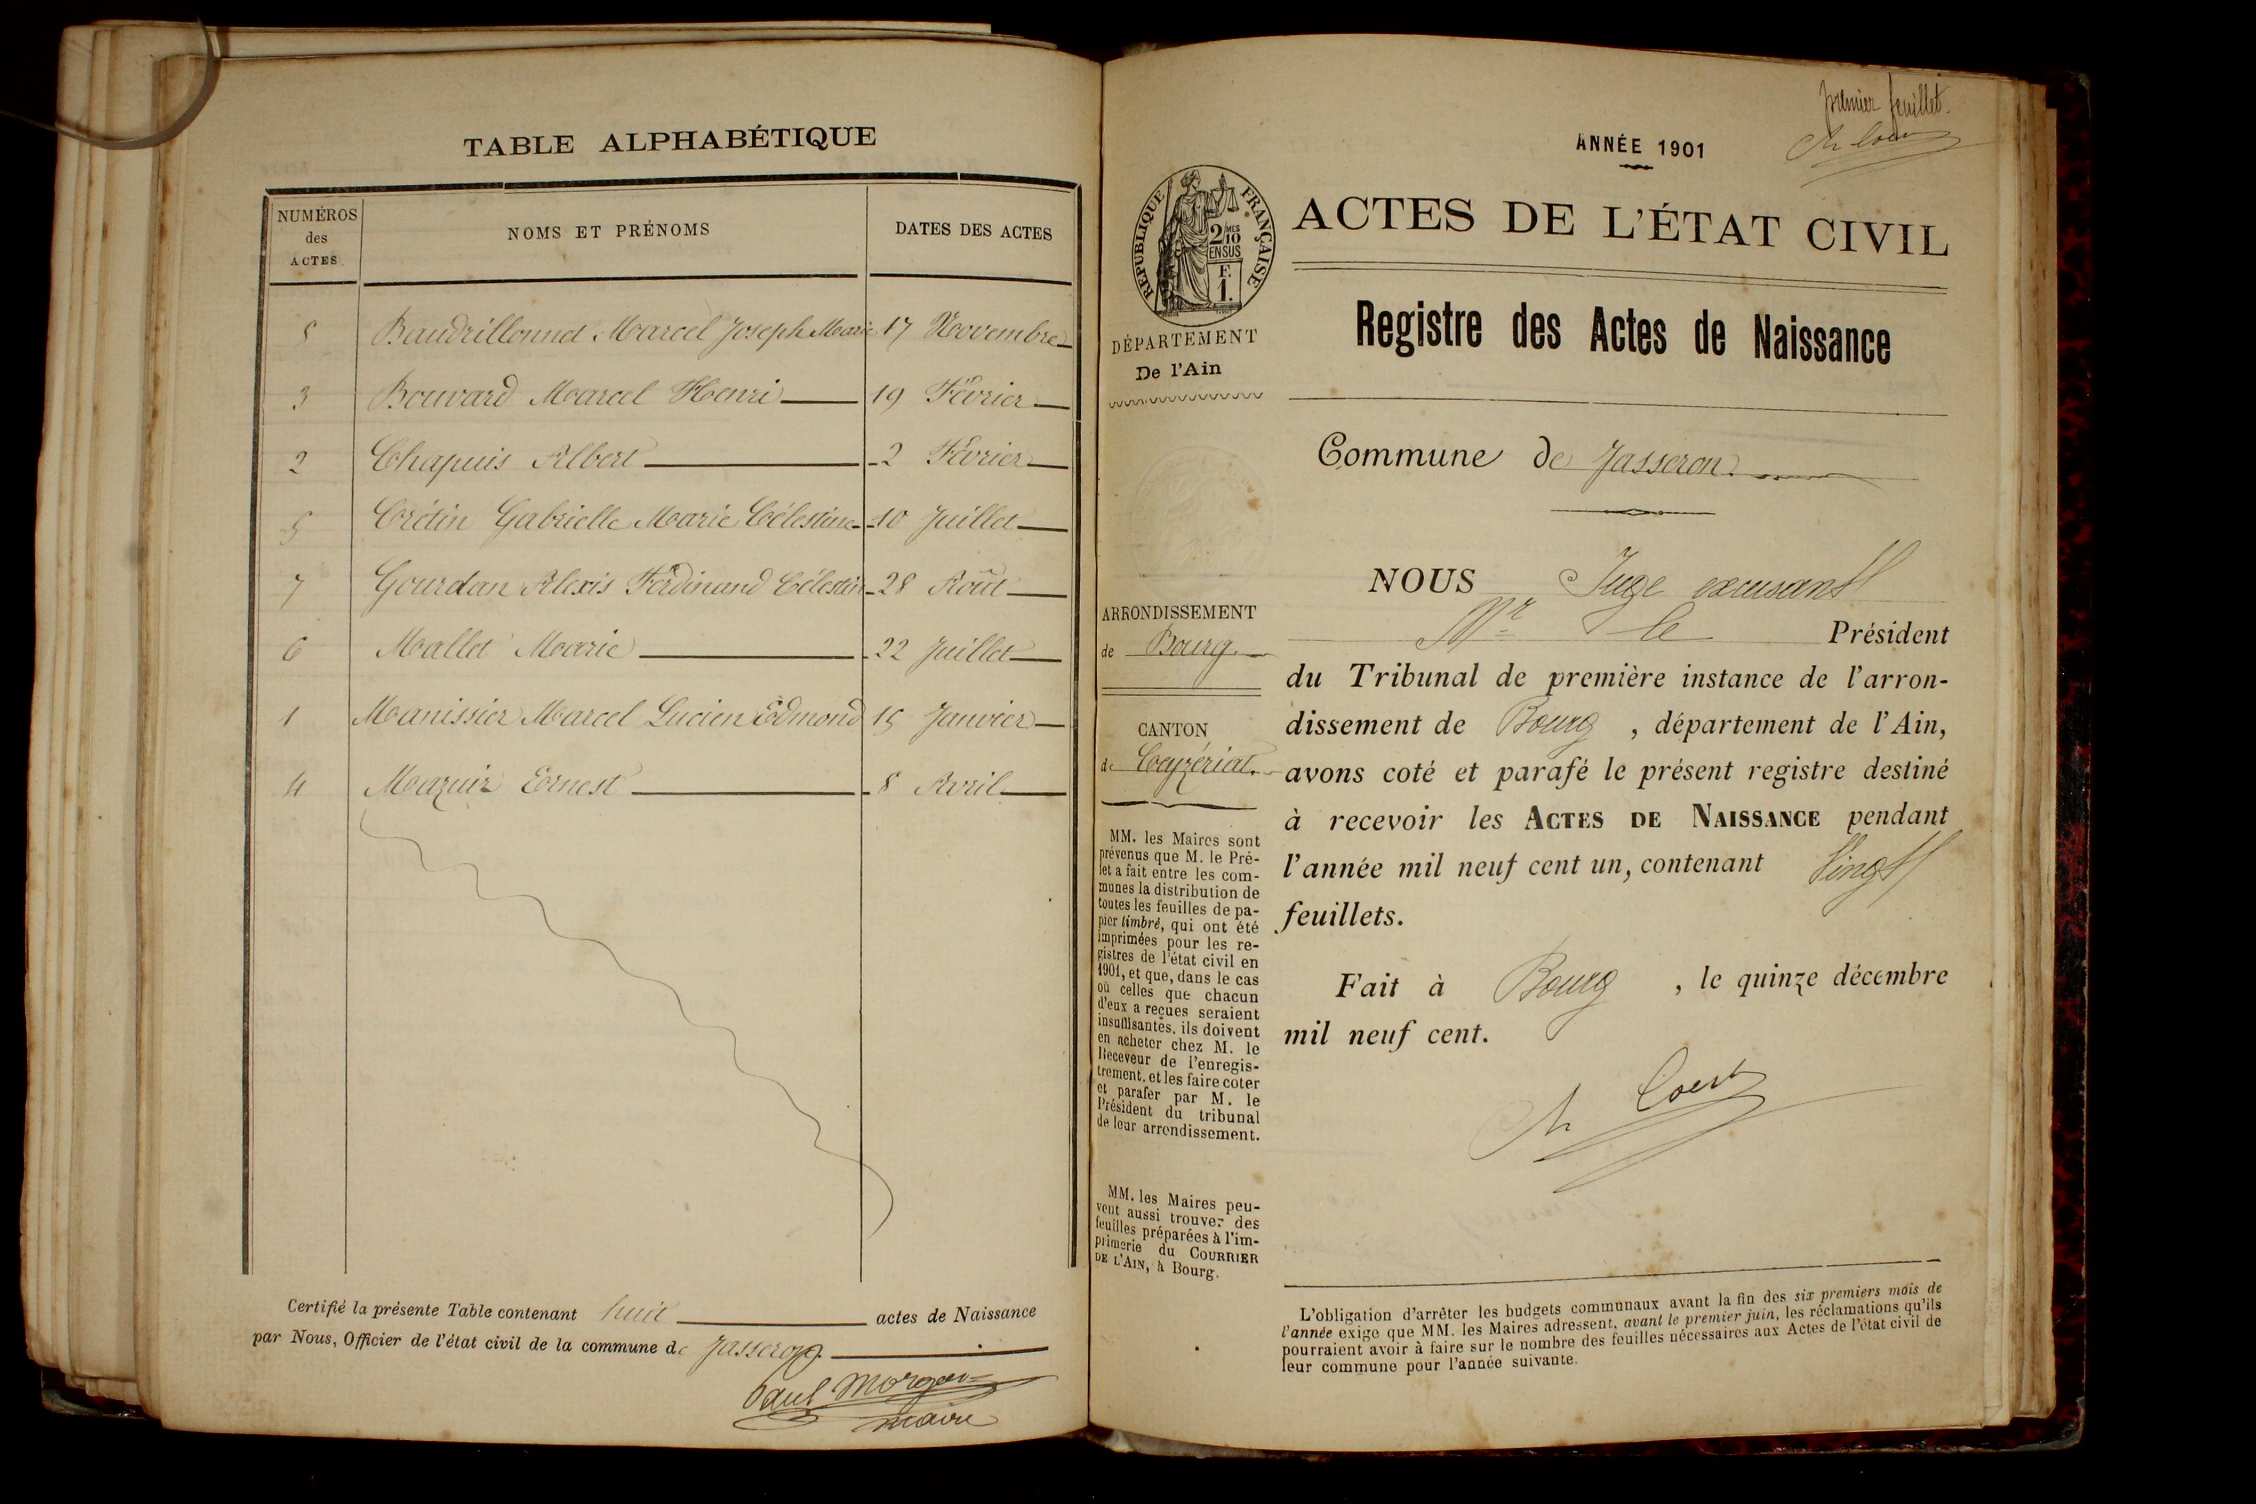 TABLE ALPHABÉTIQUE
NUMÉROS des ACTES
NOMS ET PRÉNOMS
DATES DES ACTES
8 Baudrillonnet Marcel Joseph Marie 17 Novembre
3 Bouvard Marcel Henri 19 Février
2 Chapuis Albert 2 Février
5 Crétin Gabrielle Marie Célestine 10 Juillet
7 Gourdan Alexis Ferdinand Célestin 28 Août
6 Mallet Marie 22 Juillet
1 Manissier Marcel Lucien Edmond 15 Janvier
4 Mazuir Ernest 8 Avril
Certifié la présente Table contenant huit actes de Naissance
par Nous, Officier de l'état civil de la commune de Jasseron
Paul Morgon
maire
premier feuillet.
ANNÉE 1901
RÉPUBLIQUE FRANÇAISE
2 MES 10
EN SUS
F.
1.
DÉPARTEMENT
De l'Ain
ARRONDISSEMENT
de Bourg
CANTON
de Ceyzériat
MM. les Maires sont
prévenus que M. le Pré-
fet a fait entre les com-
munes la distribution de
toutes les feuilles de pa-
pier timbré, qui ont été
imprimées pour les re-
gistres de l'état civil en
1901, et que, dans le cas
où celles que chacun
d'eux a reçues seraient
insuffisantes, ils doivent
en acheter chez M. le
Receveur de l'enregis-
trement, et les faire coter
et parafer par M. le
Président du tribunal
de leur arrondissement.
MM. les Maires peu-
vent aussi trouver des
feuilles préparées à l'im-
primerie du COURRIER
DE L'AIN, à Bourg.
ACTES DE L'ÉTAT CIVIL
Registre des Actes de Naissance
Commune de Jasseron
NOUS Juge excusant
Mr le Président
du Tribunal de première instance de l'arron-
dissement de Bourg, département de l'Ain,
avons coté et parafé le présent registre destiné
à recevoir les ACTES DE NAISSANCE pendant
l'année mil neuf cent un, contenant Vingt
feuillets.
Fait à Bourg, le quinze décembre
mil neuf cent.
L'obligation d'arrêter les budgets communaux avant la fin des six premiers mois de
l'année exige que MM. les Maires adressent, avant le premier juin, les réclamations qu'ils
pourraient avoir à faire sur le nombre des feuilles nécessaires aux Actes de l'état civil de
leur commune pour l'année suivante.